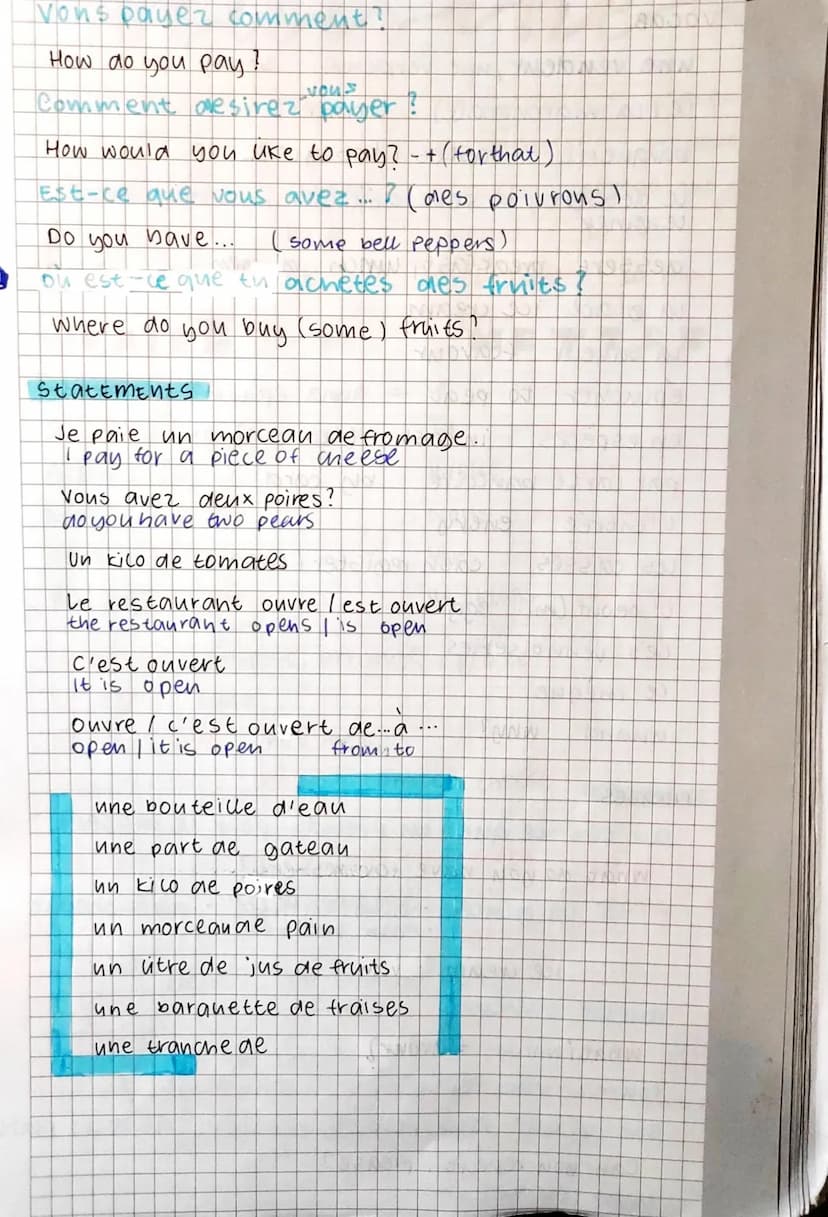 Vous payez comment?
How do you pay?
Comment desirez vous payer?
How would you like to pay? -+(for that)
Est-ce que vous avez...? (des poivrons)
Do you have... (some bell peppers)
où est-ce que tu achètes des fruits?
Where do you buy (some) fruits?
Statements
Je paie un morceau de fromage.
I pay for a piece of cheese
Vous avez deux poires?
do you have two pears
Un kilo de tomates
Le restaurant ouvre / est ouvert
the restaurant opens | is open
C'est ouvert
It is open
ouvre / c'est ouvert de...à...
open | it is open from to
une bouteille d'eau
une part de gateau
un kilo de poires
un morceau de pain
un litre de jus de fruits
une barquette de fraises
une tranche de